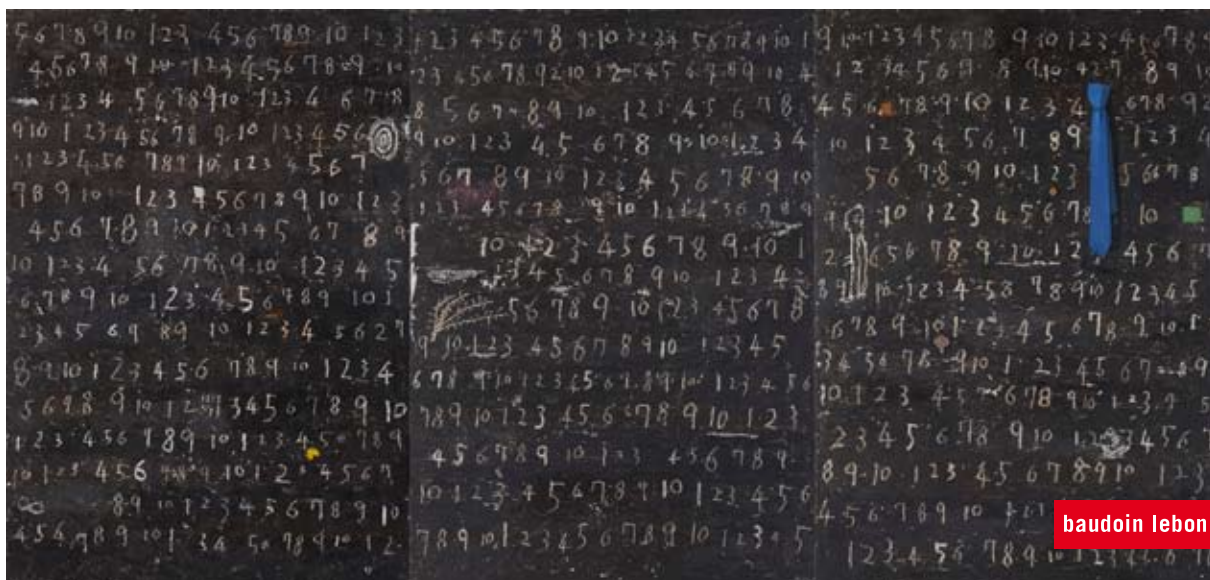 5 6 7 8 9 10 1 2 3 4 5 6 7 8 9 10 1 2 3
4 5 6 7 8 9 10 1 2 3 4 5 6 7 8 9 10
1 2 3 4 5 6 7 8 9 10 1 2 3 4 6 7 8
9 10 1 2 3 4 5 6 7 8 9 10 1 2 3 4 5 6
1 2 3 4 5 6 7 8 9 10 1 2 3 4 5 6 7
7 8 9 10 1 2 3 4 5 6 7 8 9 10 1 2 3
4 5 6 7 8 9 10 1 2 3 4 5 6 7 8 9
10 1 2 3 4 5 6 7 8 9 10 1 2 3 4 5
6 7 8 9 10 1 2 3 4 5 6 7 8 9 10 1
2 3 4 5 6 7 8 9 10 1 2 3 4 5 6 2 7
8 9 10 1 2 3 4 5 6 7 8 9 10 1 2 3 4
5 6 7 8 9 10 1 2 3 4 5 6 7 8 9 10
1 2 3 4 5 6 7 8 9 10 1 2 3 4 5 7 8 9
10 1 2 3 4 5 6 7 8 9 10 1 2 4 5 6 7
8 9 10 1 2 3 4 5 6 7 8 9 10
4 5 6 7 8 9 10 1 3 4 5 6 7 8 9 10 1 2
1 2 3 4 5 6 7 8 9 10 1 2 3 4 5 6 7 8 9 10 1
2 3 4 5 6 7 8 9 10 1 2 4 5 6 7 8 9 10
8 5 6 7 8 9 10 1 2 3 4 5 6 7 8
9 10 1 2 3 4 5 6 7 8 9 10 1 2 3 4
5 6 7 8 9 10 1 2 3 4 5 6 7 8 9 10
1 2 3 4 5 6 7 8 9 10 1 2 3 4 5 6 7 8 9
10 1 2 3 4 5 6 7 8 9 10 1
3 4 5 6 7 8 9 10 1 2 3 4
5 6 7 8 9 10 1 2 3 4 5 6 7 8
9 10 1 2 3 4 5 6 7 8 9 10 1 2 3 4 5
6 7 8 9 10 1 2 3 4 5 6 7 8 9 10 1 2 3 4 5 6
7 8 9 10 1 2 3 4 5 6 7 8 9 10 1 2 3
4 5 6 7 8 9 10 1 2 3 4 5 6 7 8 9
10 1 2 3 4 5 6 7 8 9 10 1 2 3 4 5 6
7 8 9 10 1 2 3 4 5 6 7 8 9 10 1 2 3 5
9 10 1 2 3 4 5 6 7 8 9 10 1 2 3 4 5 6 7 8
1 2 3 4 5 6 7 8 9 10 8 9 10
4 5 6 7 8 9 10 1 2 3 4 6 7 8 9
10 1 2 3 4 5 6 7 8 9 1 2 3 4
5 6 7 8 9 10 1 2 3 5 6 7 8
9 10 1 2 3 4 5 6 7 8 10
2 6 5 6 7 8 9 10 1 2 4 5 6 7
8 9 10 1 2 3 4 5 8 7 8 9 10 1 2 3 4 5
6 7 8 9 10 1 2 3 4 5 6 7 8 9 10 1
3 4 5 6 7 8 9 10 1 2 3 4 5 6 7 8 9
10 1 2 3 4 5 6 7 8 9 10 1 2 3
2 3 4 5 6 7 8 9 10 1 2 3 4 5 6 7
8 9 10 1 2 3 4 5 6 7 8 9 10 1 2 3
4 5 6 7 8 9 10
1 2 3 4 5 6 7 8 9 10 1 2 3 4 5 6
baudoin lebon